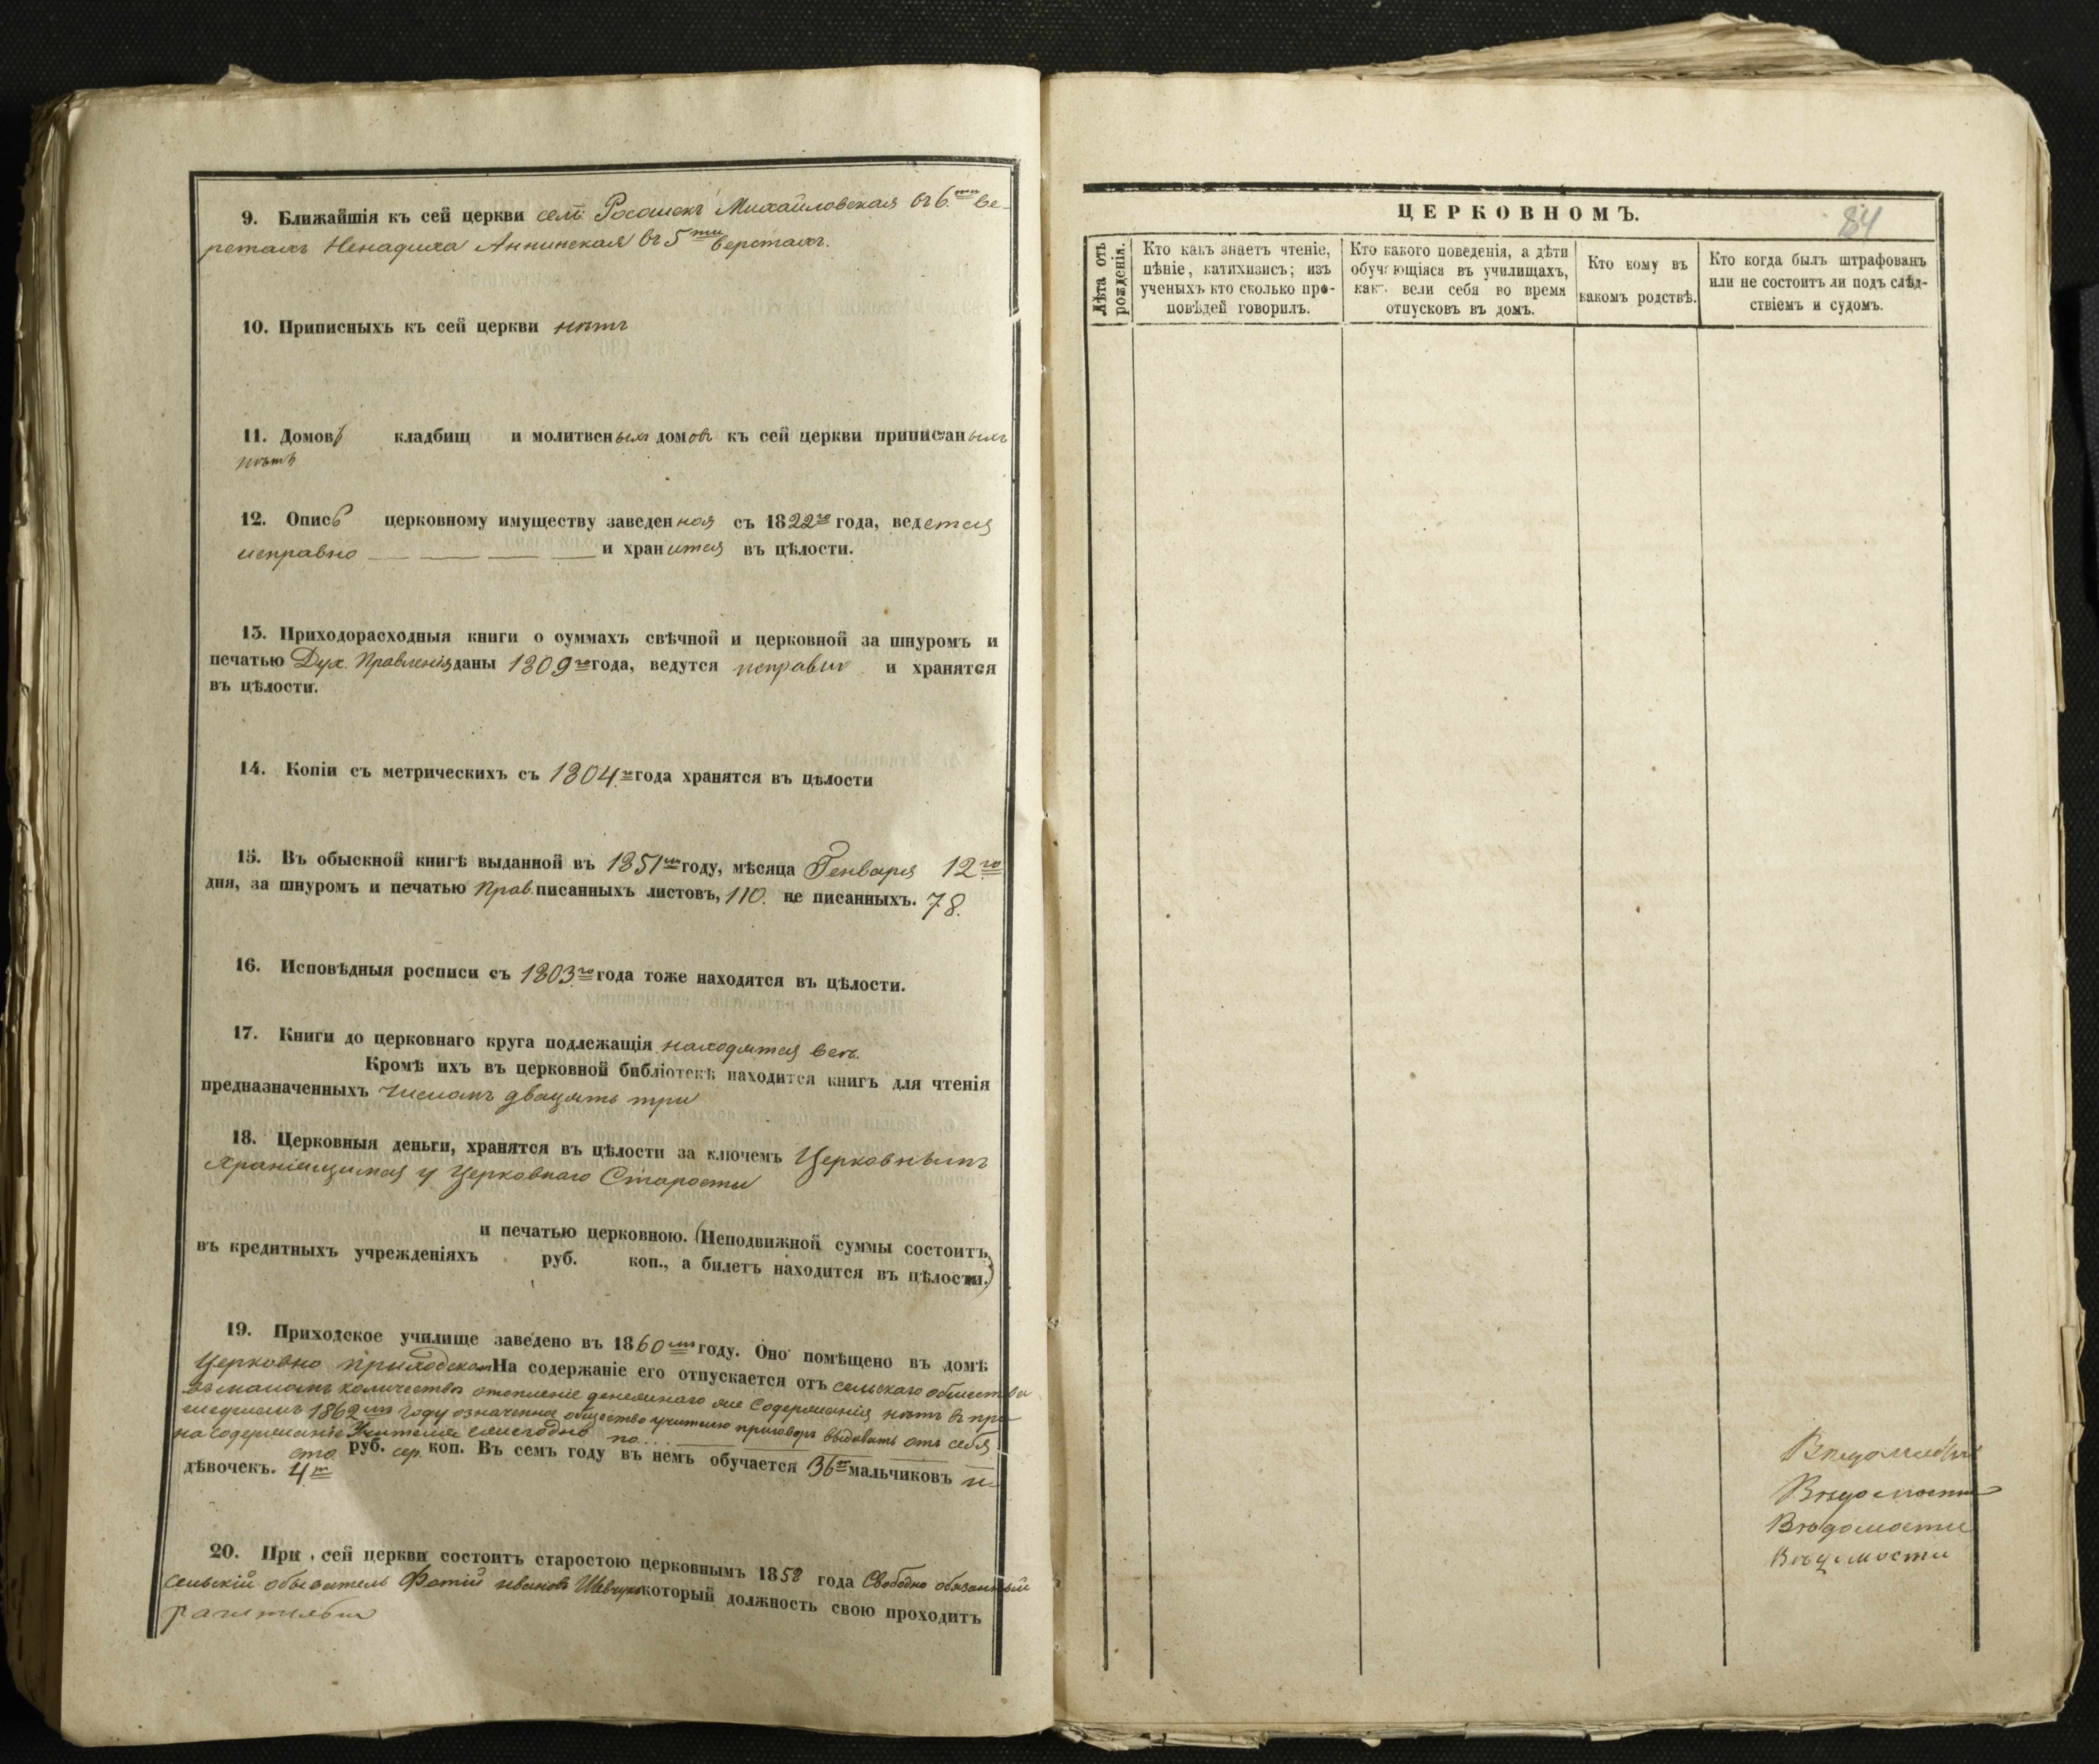 9. Ближайшія къ сей церкви сел: Росошекъ Михайловская въ 6.ти ве-
рстахъ Ненадиха Аннинская въ 5ти верстахъ.
10. Приписныхъ къ сей церкви нѣтъ
11. Домовъ кладбищ и молитвенныхъ домовъ къ сей церкви приписанныхъ
нѣтъ
12. Опись церковному имуществу заведенная съ 1822го года, ведется
исправно — — — — и хранится въ цѣлости.
13. Приходорасходныя книги о суммахъ свѣчной и церковной за шнуромъ и
печатью Дух. Правленія даны 1809го года, ведутся исправно и хранятся
въ цѣлости.
14. Копіи съ метрическихъ съ 1804го года хранятся въ цѣлости
15. Въ обыскной книгѣ выданной въ 1851мъ году, мѣсяца Генваря 12го
дня, за шнуромъ и печатью Прав. писанныхъ листовъ, 110. не писанныхъ. 78.
16. Исповѣдныя росписи съ 1803го года тоже находятся въ цѣлости.
17. Книги до церковнаго круга подлежащія находятся всѣ.
Кромѣ ихъ въ церковной библіотекѣ находится книгъ для чтенія
предназначенныхъ числомъ двацять три
18. Церковныя деньги, хранятся въ цѣлости за ключемъ Церковнымъ
хранящимся у Церковнаго Старосты
и печатью церковною. (Неподвижной суммы состоитъ
въ кредитныхъ учрежденіяхъ руб. коп., а билетъ находится въ цѣлости.)
19. Приходское училище заведено въ 1860мъ году. Оно помѣщено въ домѣ
Церковно приходском На содержаніе его отпускается отъ сельскаго общества
въ маломъ количествѣ отопленіе денежнаго же содержанія нѣтъ въ пре-
1862мъ году означенное общество учителю приговоръ выдавать отъ себя
на содержаніе Учителя ежегодно по...
сто руб. сер. коп. Въ семъ году въ немъ обучается 36ть мальчиковъ и
дѣвочекъ. 4ре
20. При сей церкви состоитъ старостою церковнымъ 1858 года Свободно обязанный
сельскій обыватель Фотій Ивановъ Шевчукъ который должность свою проходитъ
рачительно
ЦЕРКОВНОМЪ.
84
Лѣта отъ рожденія.
Кто какъ знаетъ чтеніе,
пѣніе, катихизисъ; изъ
ученыхъ кто сколько про-
повѣдей говорилъ.
Кто какого поведенія, а дѣти
обучающіяся въ училищахъ,
какъ вели себя во время
отпусковъ въ домъ.
Кто кому въ
какомъ родствѣ.
Кто когда былъ штрафованъ
или не состоитъ ли подъ слѣд-
ствіемъ и судомъ.
Вѣдомости
Вѣдомости
Вѣдомости